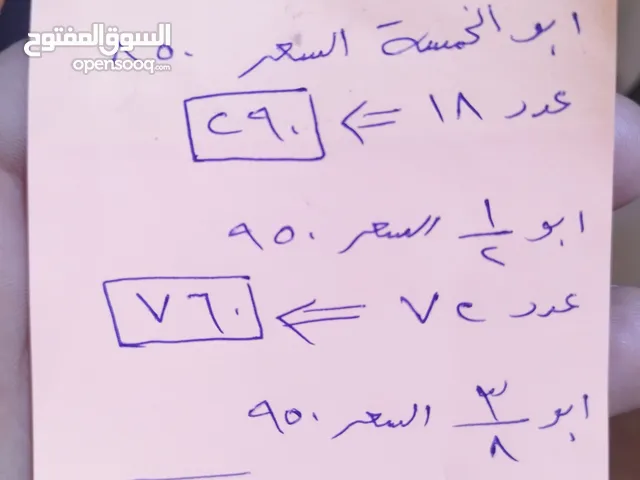 السوق المفتوح
opensooq.com
ابو الخمسة السعر ٨٥٠
عدد ١٨ ⇐ ٢٩٠
ابو ١/٢ السعر ٩٥٠
عدد ٧٢ ⇐ ٧٦٠
ابو ٣/٨ السعر ٩٥٠